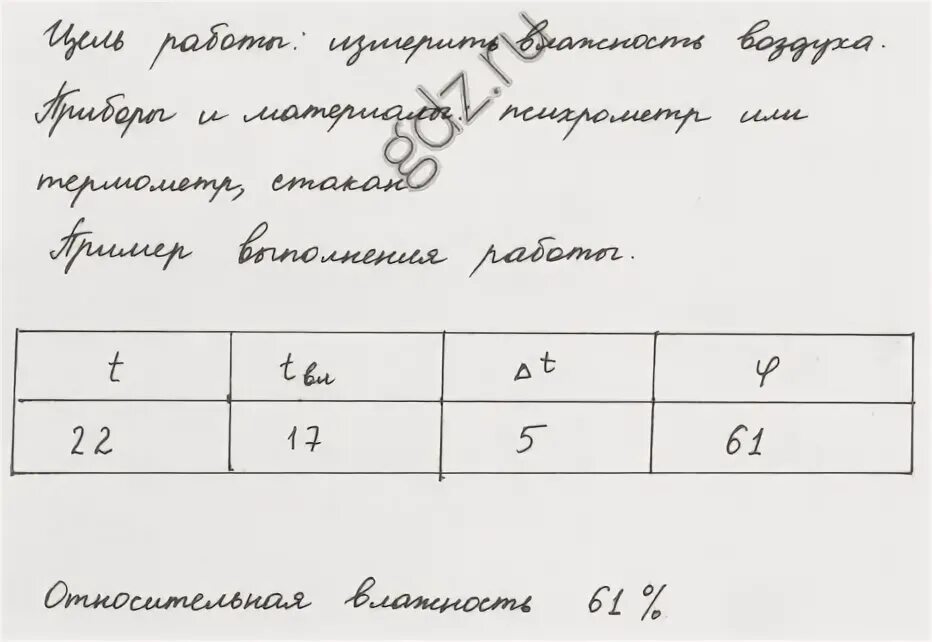 Цель работы: измерить влажность воздуха.
Приборы и материалы: психрометр или
термометр, стакан
Пример выполнения работы.
t tвл Δt φ
22 17 5 61
Относительная влажность 61 %
gdz.ru